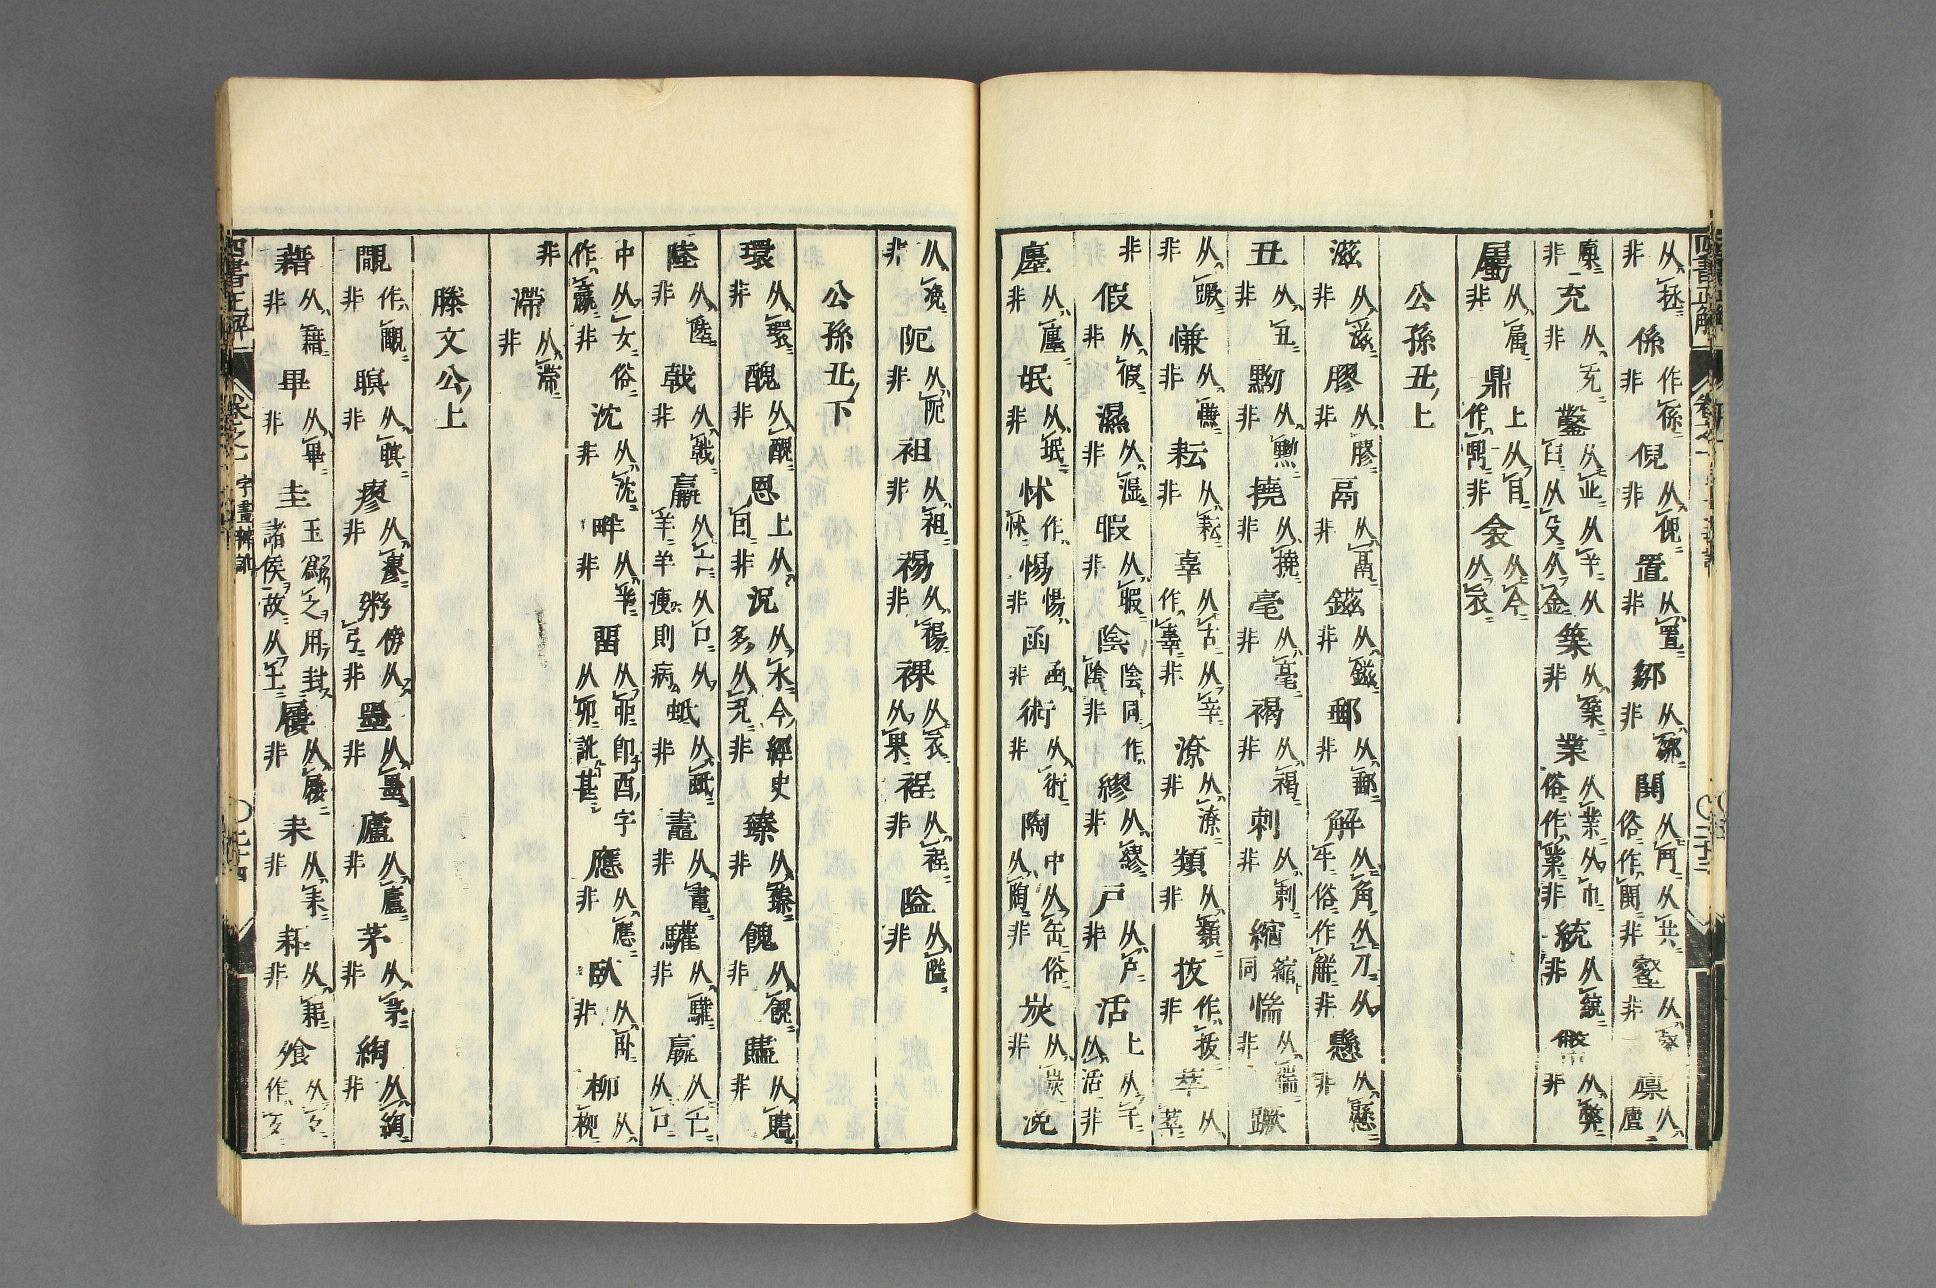 从拯非係作係非倪从倪非置从置非鄒从鄒非鬨从鬥从共俗作閧非壑从壑非廩从廩
廩非充从充非鑿从丵从臼从殳从金非築从築非業从丵从巾俗作業非統从統非檠从弊非
屬从属非鼎上从目作鼑非衾从今从衣
公孫丑上
滋从滋非膠从膠非鬲从鬲非鎡从鎡非郵从郵非解从角从刀从牛俗作觧非懸从懸非
丑从丑非黝从黝非撓从撓非毫从毫非褐从褐非刺从刺非縮縮同惴从惴非蹶
从蹶非慊从慊非耘从耘非辜从古从辛作辠非潦从潦非類从類非拔作拔非萃从萃
非假从假非濕从湿非暇从暇非陰陰同作陰非繆从繆非戶从户非活上从千从活非
廛从廛非氓从氓非怵作怵惕惕非函函非術从術非陶中从缶俗从陶非炭从炭非浼
从浼非阨从阨非袒从袒非裼从裼非裸从衣从果裎从裎非隘从隘非
公孫丑下
環从環非醜从醜非恩上从因非況从水今經史多从兄非臻从臻非餽从餽非贐从贐非
陸从陸非戟从戟非羸从亡从口从羊羊瘦則病蚳从蚳非鼃从鼃非驩从驩非嬴从亡从口
中从女俗作嬴非沈从沈非畔从畔非留从丣丣卽酉字从卯訛甚應从應非臥从卧非柳从桺
非滯从滯非
滕文公上
覵作覵非瞑从瞑非瘳从瘳非粥傍从弓非墨从墨非廬从廬非茅从茅非綯从綯非
藉从籍非畢从畢非圭玉爲之用封諸侯故从土屨从屨非耒从耒非耕从耕非飧从夕作夕
四書正解 卷之一 字畫辨訛 二十四
四書正解 卷之一 二十三